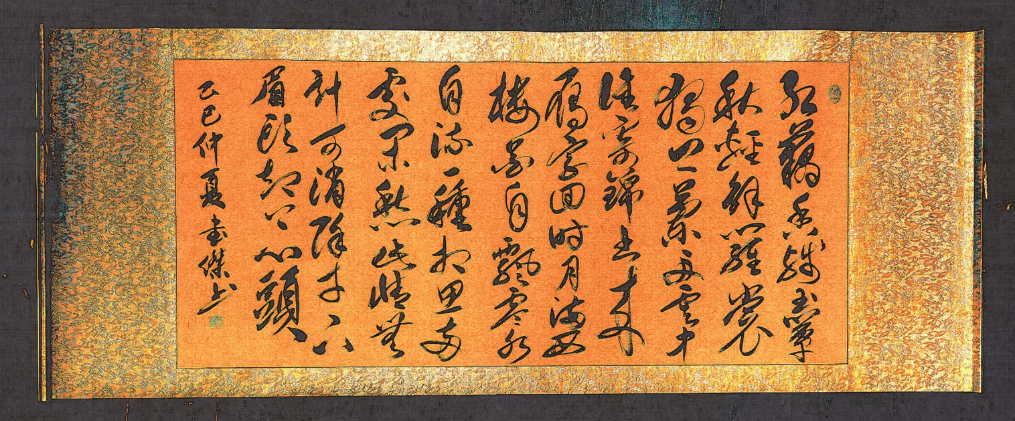 红藕香殘玉簟
秋輕解羅裳
獨上蘭舟雲中
誰寄錦书来
雁字回时月满西
樓花自飄零水
自流一種相思兩
處閒愁此情無
计可消除才下
眉头却上心頭
乙巳仲夏 傑书